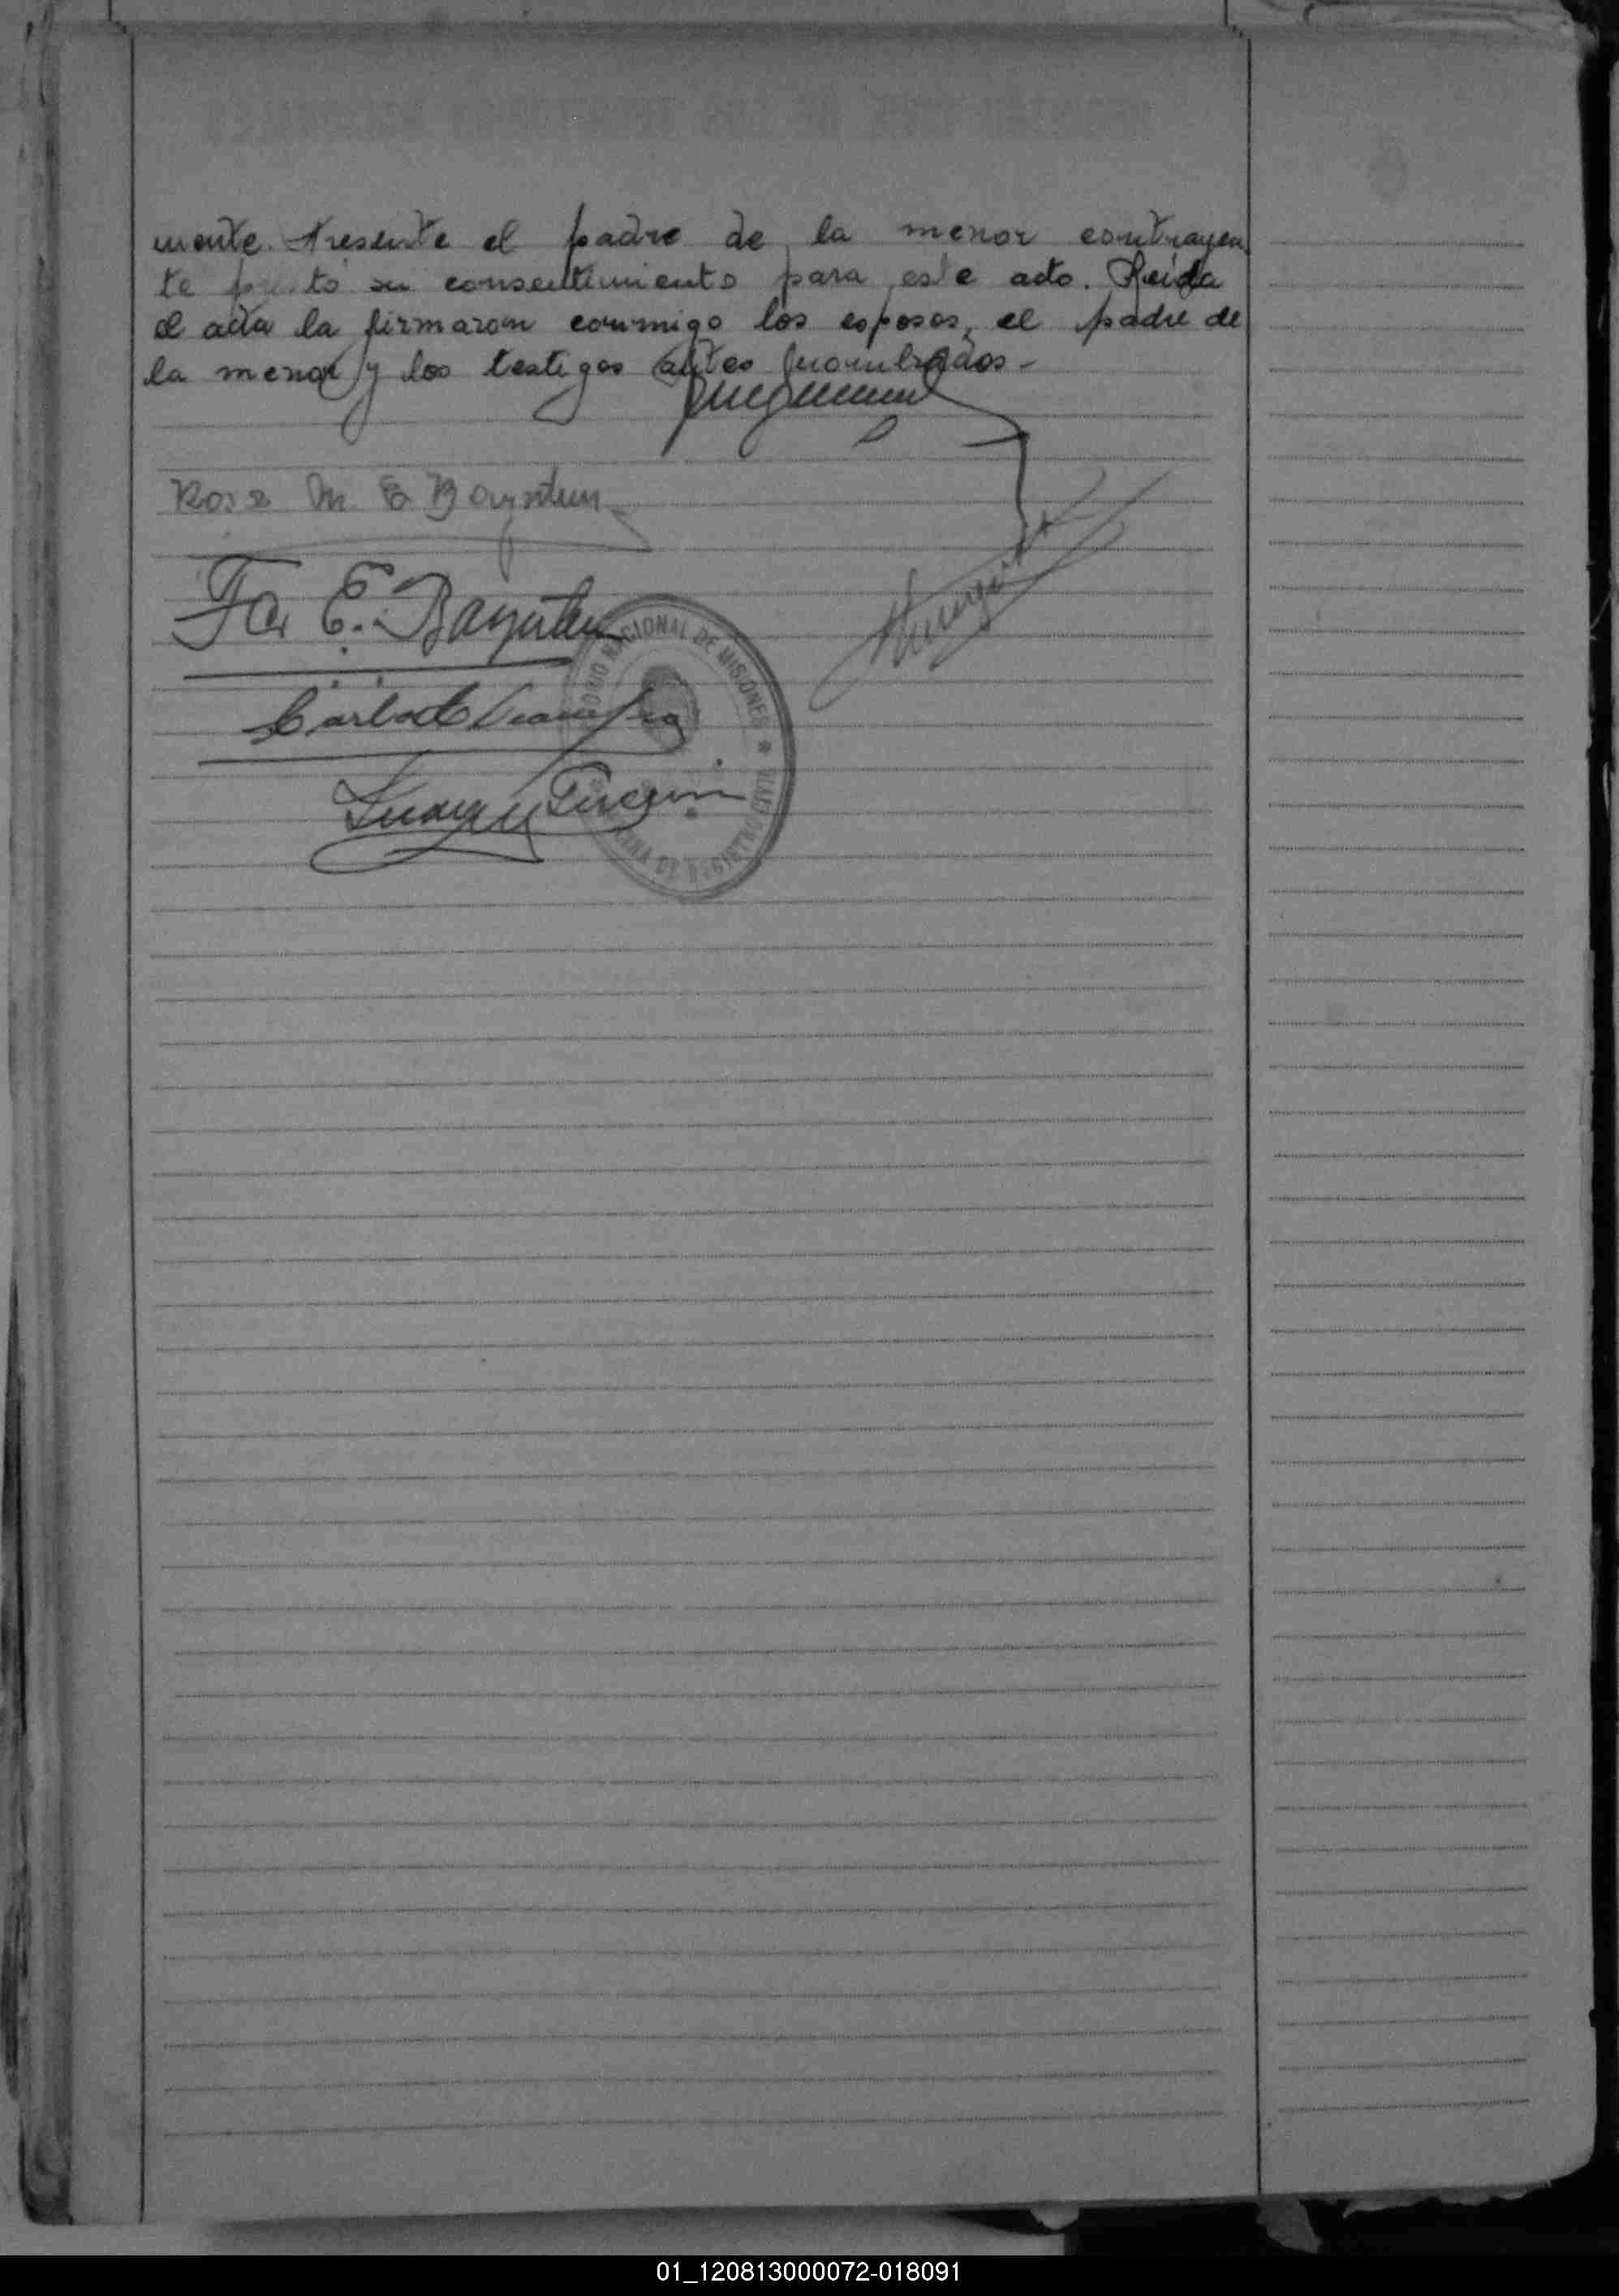 mente. Presente el padre de la menor contrayen
te prestó su consentimiento para este acto. Leída
el acta la firmaron conmigo los esposos, el padre de
la menor y los testigos antes nombrados.-
Rosa M. E Bayntun
Fa E. Bayntun
NACIONAL DE MISIONES * REGISTRO CIVIL
01_120813000072-018091